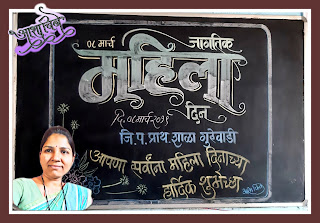 आशाचित्र
०८ मार्च
जागतिक
महिला
दिन
दि. ०८ मार्च २०२५
जि. प. प्राथ. शाळा गुरेवाडी
आपणा सर्वांना महिला दिनाच्या
हार्दिक शुभेच्छा